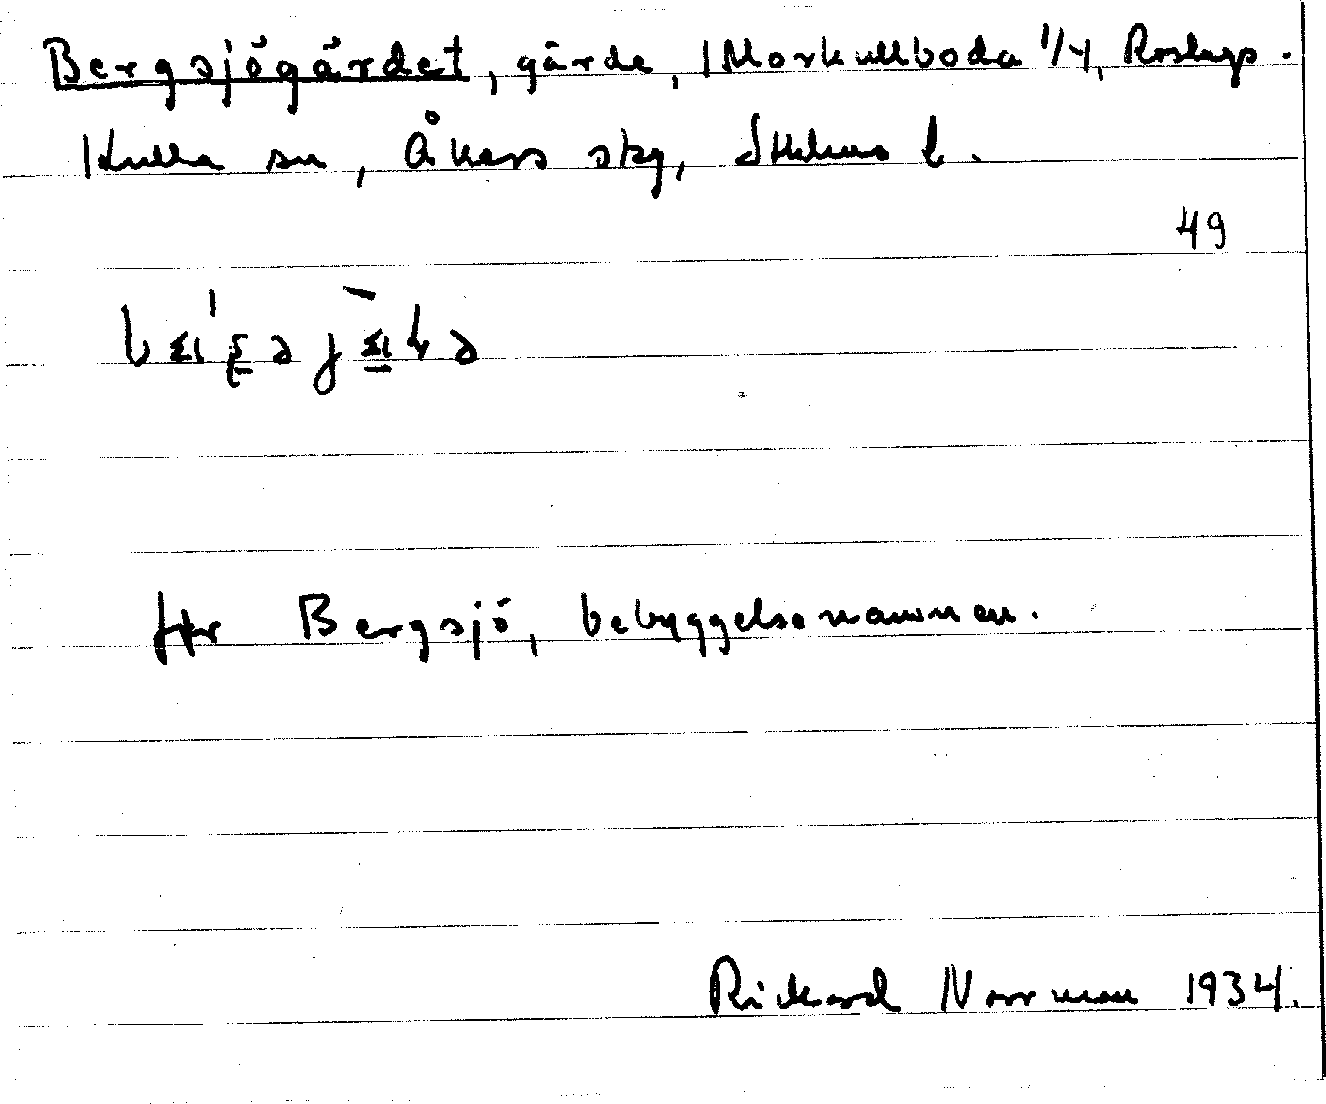 Bergsjögärdet, gärde, Morkullboda 1/4, Roslags-
Kulla sn, Åkers skg, Sthlms l.
49
Hr Bergsjö, bebyggelsenamnen.
Rickard Norrman 1934.